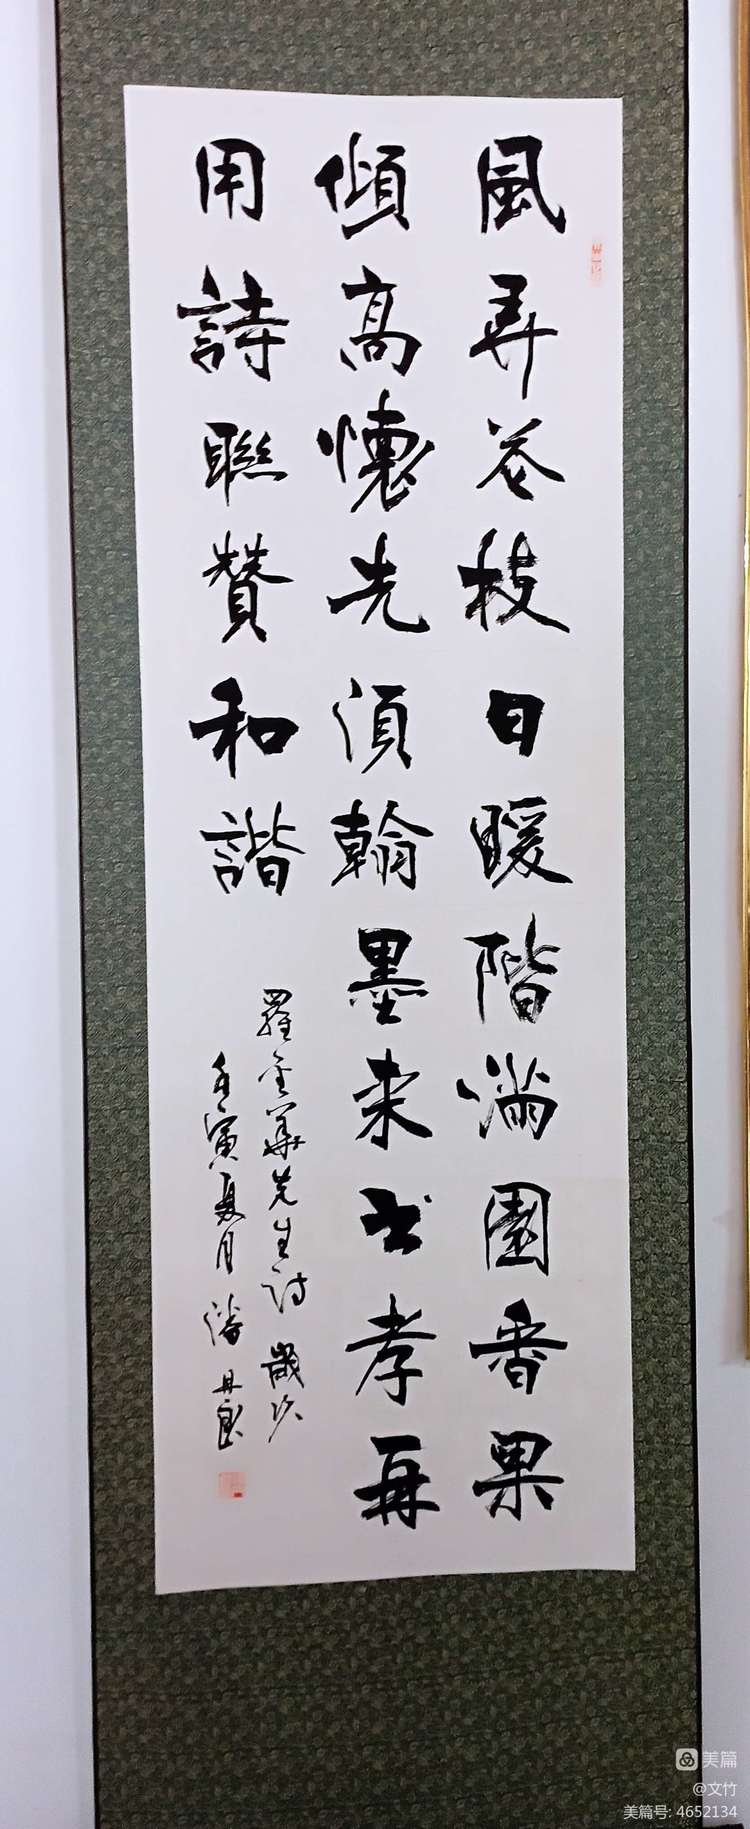 風弄花枝日暖階滿園香果
傾高懷先須翰墨来书孝再
用詩聯贊和諧
羅金華先生詩 歲次
壬寅夏月 潘丑良
美篇
@文竹
美篇号: 4652134